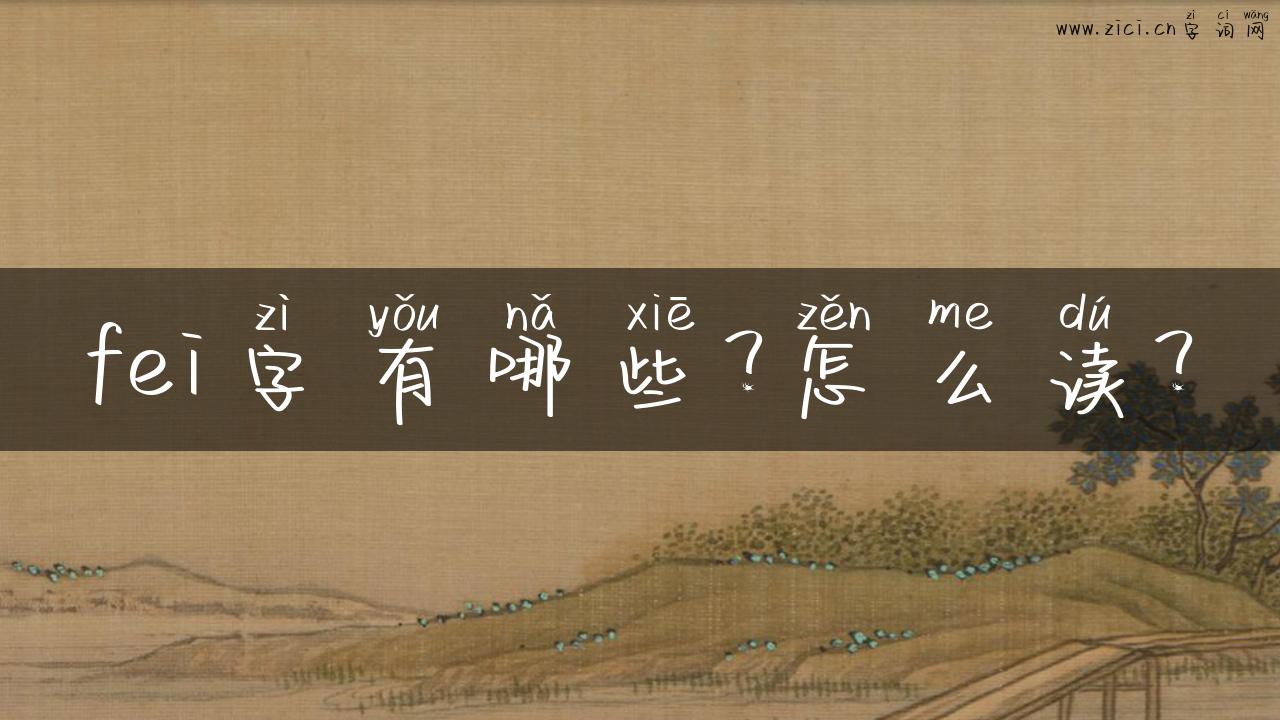 zì cí wǎng
www.zici.cn字词网
zì yǒu nǎ xiē zěn me dú
fei字有哪些?怎么读?